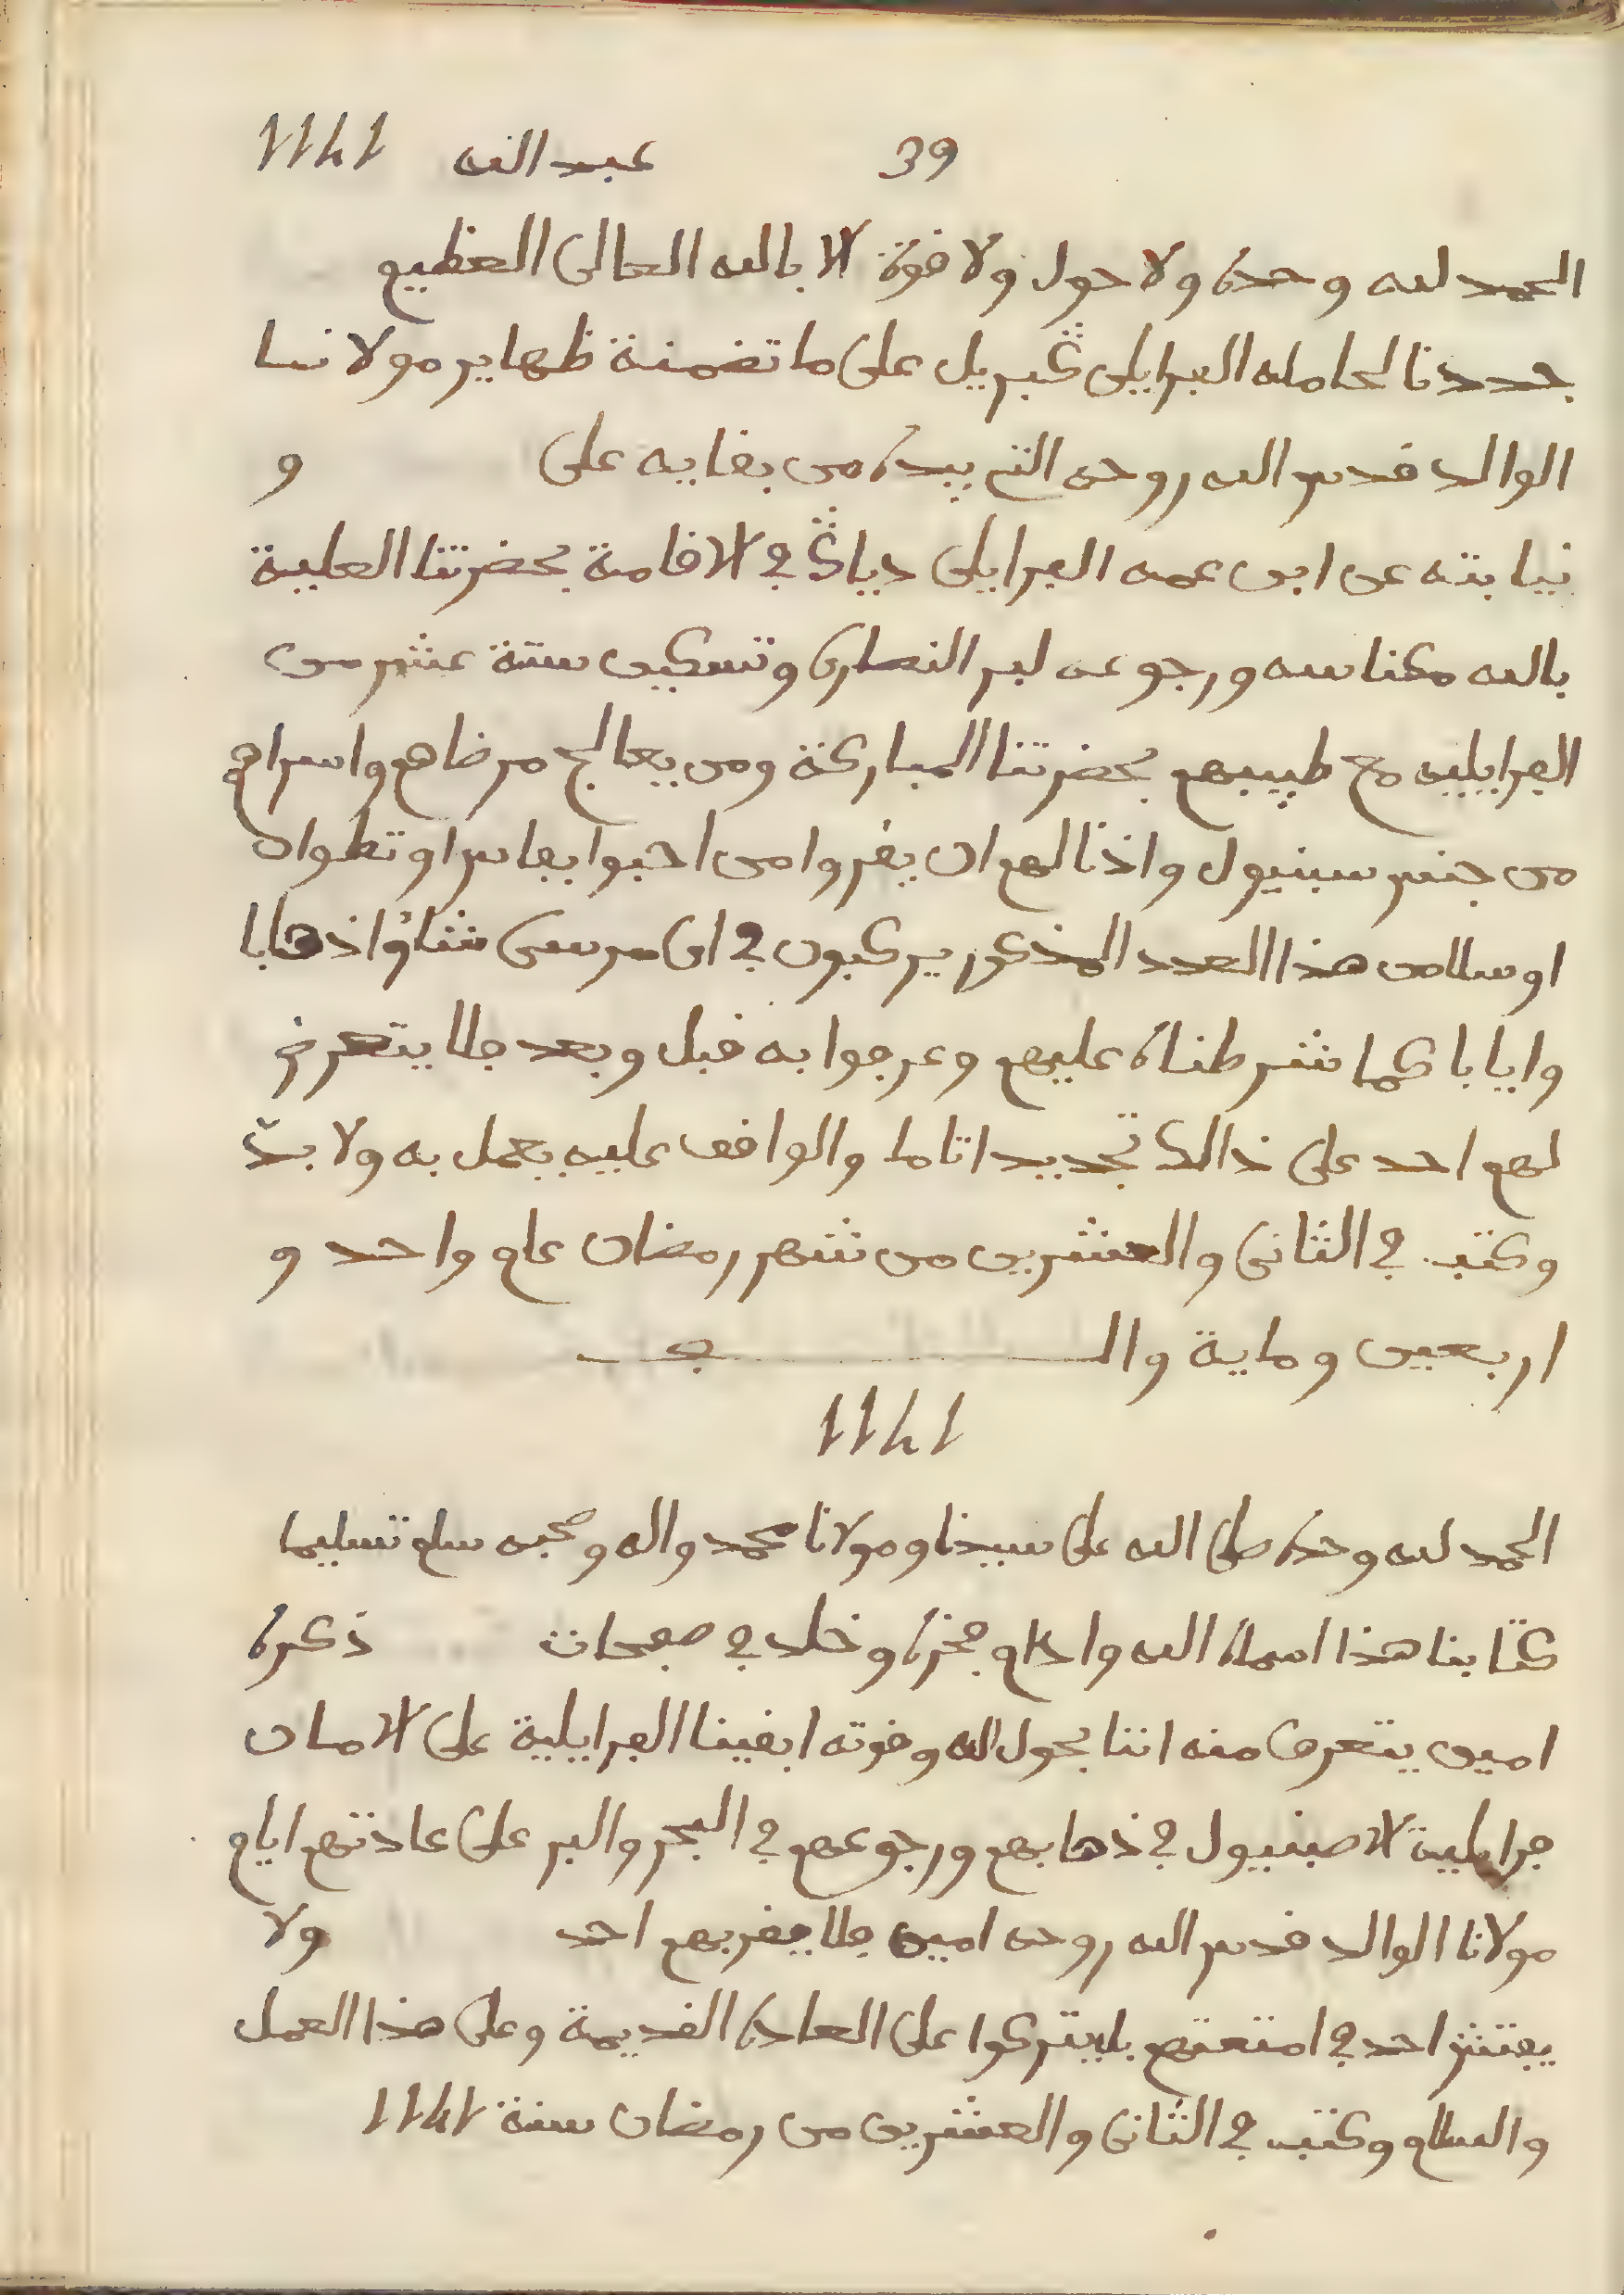 39 عبد الله 1141
الحمد لله وحده ولا حول ولا قوة الا بالله العالى العظيم
جددنا لحامله الفرايلى ڭبريل على ما تضمنة ظهاير مولانا
الوالد قدس الله روحه التى بيده من بقايه على و
نيابته عن ابن عمه الفرايلى دياڭ في الاقامة بحضرتنا العلية
بالله مكناسه ورجوعه لبر النصارى وتسكين ستة عشر من
الفرايليه مع طبيبهم بحضرتنا المباركة ومن يعالج مرضاهم واسراهم
من جنس سبنيول واذنا لهم ان يقروا من احبوا بفاس او تطوان
او سلا من هذا العدد المذكور يركبون في اى مرسى شاؤا ذهابا
وايابا كما شرطناه عليهم وعرفوا به قبل وبعد فلا يتعرض
لهم احد على ذالك تجديدا تاما والواقف عليه يعمل به ولا بدّ
وكتب في الثانى والعشرين من شهر رمضان عام واحد و
اربعين وماية والف
1141
الحمد لله وحده صلى الله على سيدنا ومولانا محمد واله وصحبه سلم تسليما
كتابنا هذا اسماه الله وادام فخره وخلد في صفحات ذكره
امين يتعرف منه اننا بحول الله وقوته ابقينا الفرايلية على الامان
فرايلية الاصبنيول في ذهابهم ورجوعهم في البحر والبر على عادتهم ايام
مولانا الوالد قدس الله روحه امين فلا يقربهم احد ولا
يفتش احد في امتعتهم بل يتركوا على العادة القديمة وعلى هذا العمل
والسلام وكتب في الثانى والعشرين من رمضان سنة 1141